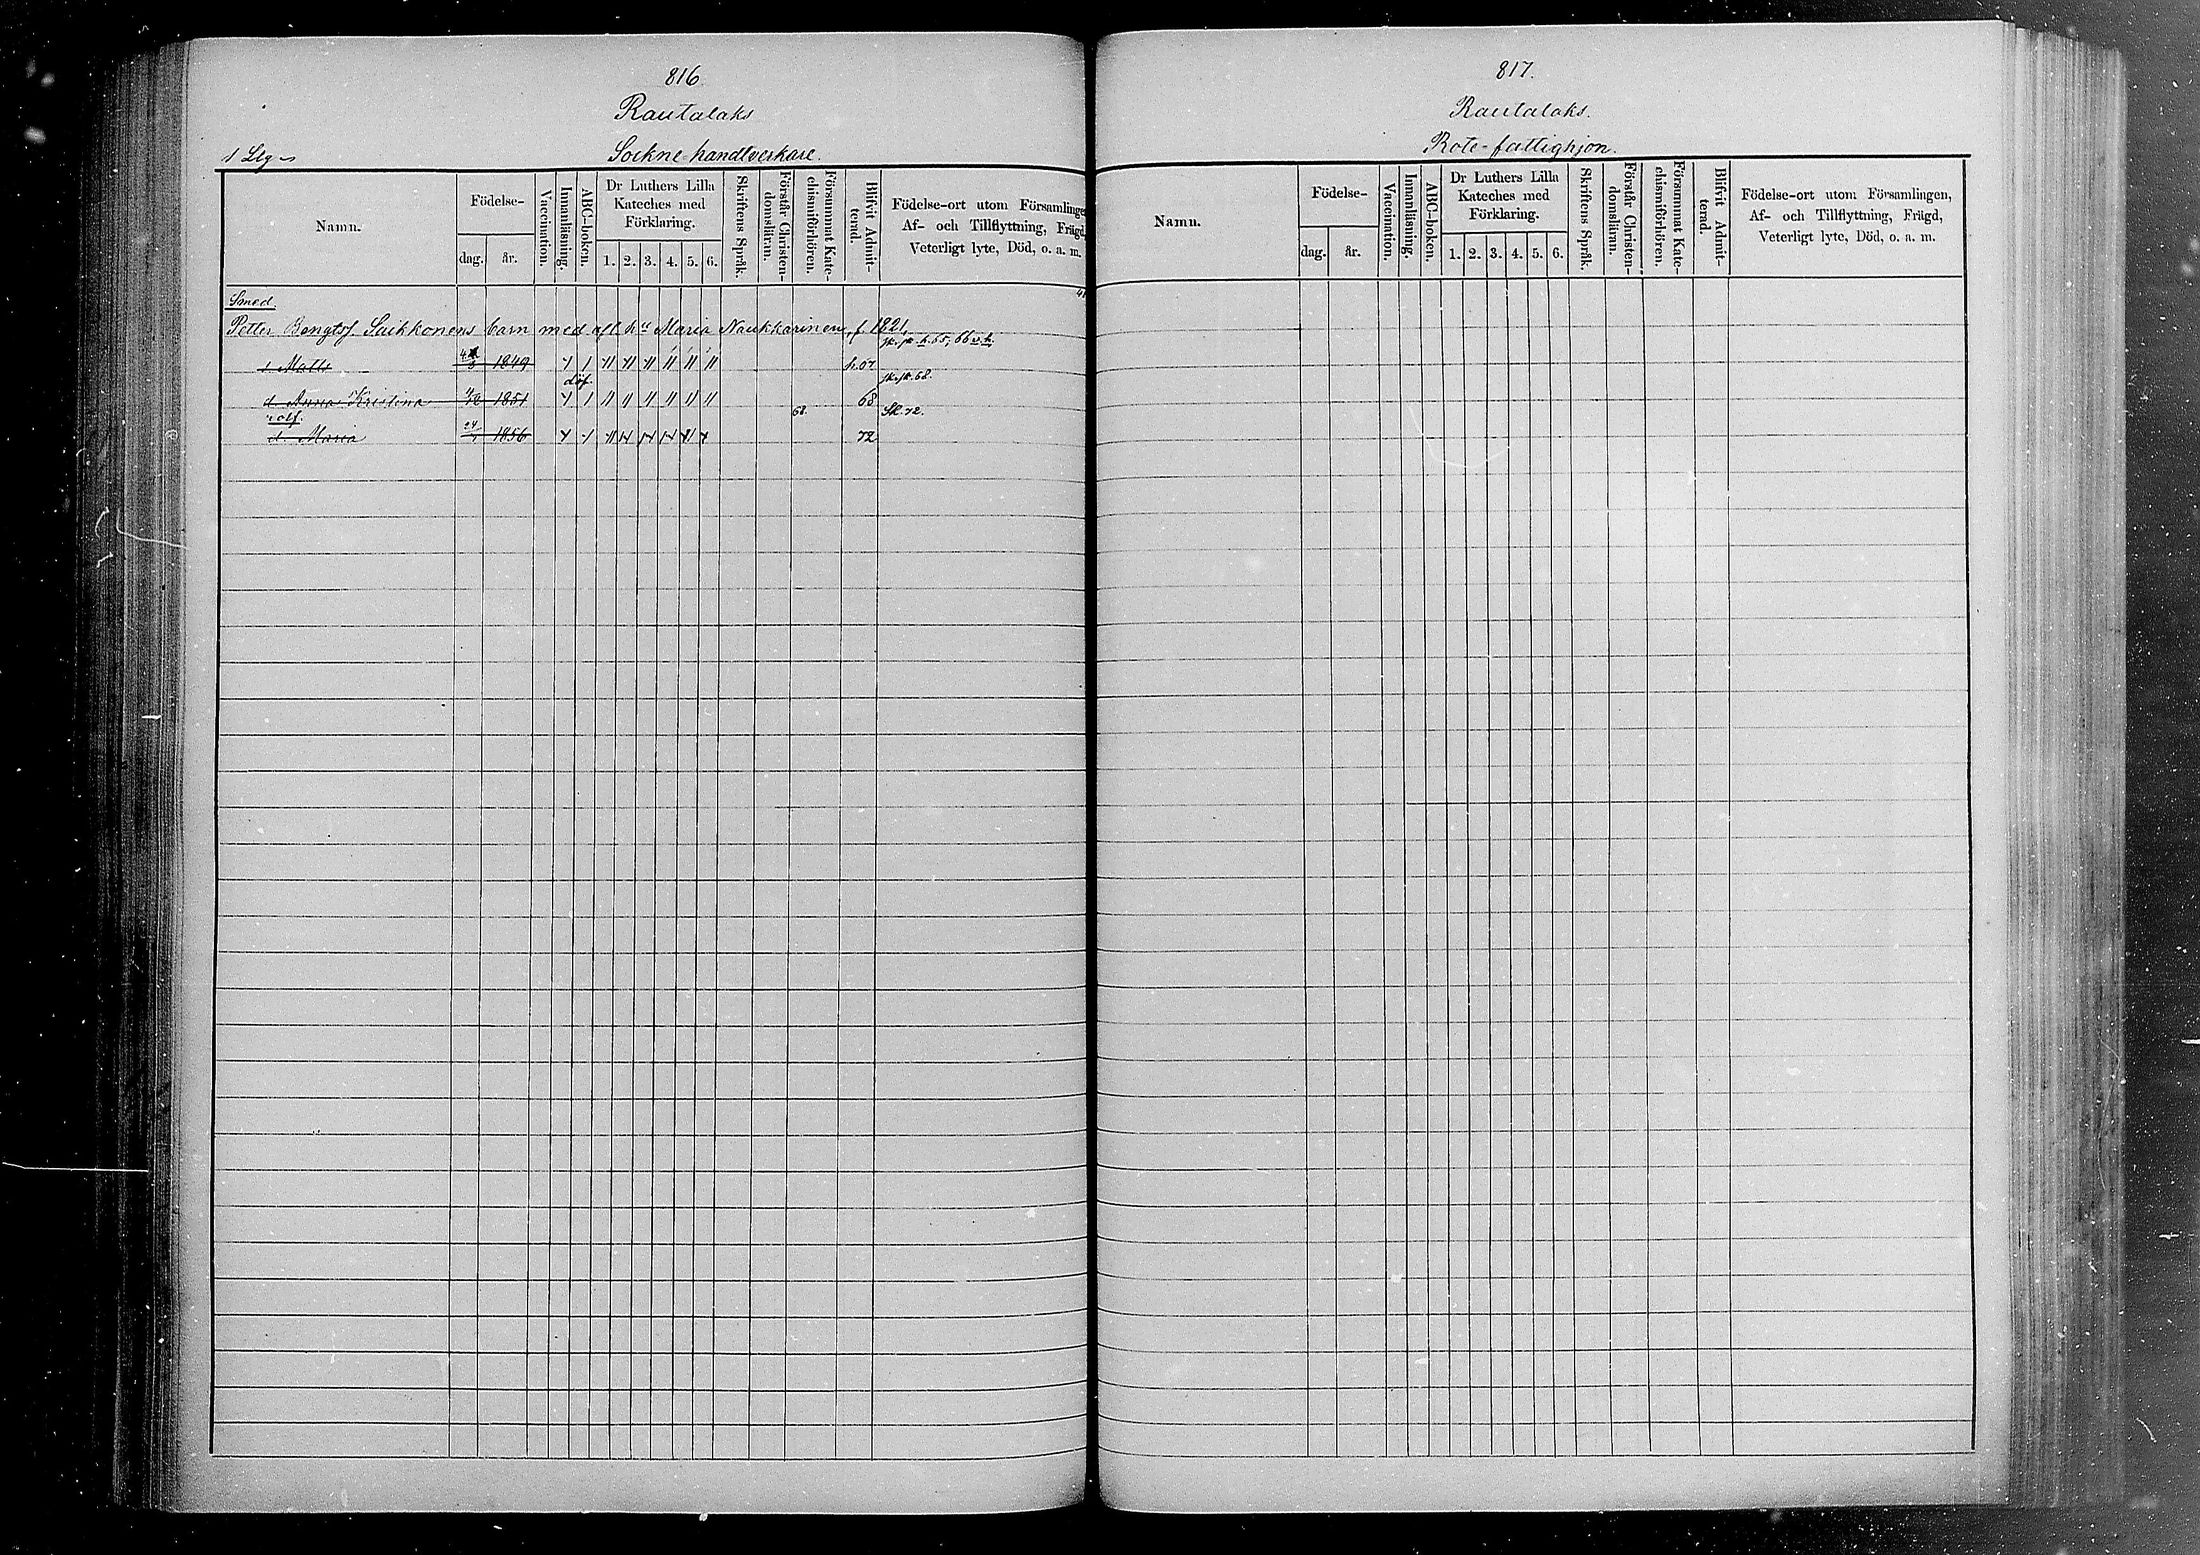 816.
Rautalaks
1 Llg
Sockne-handtverkare.
Namn.
Födelse-
dag.
år.
Vaccination.
Innanläsning.
ABC-boken.
Dr Luthers Lilla
Kateches med
Förklaring.
1. 2. 3. 4. 5. 6.
Skriftens Språk.
Förstår Christen-
domsläran.
Försummat Kate-
chismiförhören.
Blifvit Admit-
terad.
Födelse-ort utom Församlingen,
Af- och Tillflyttning, Frägd,
Veterligt lyte, Död, o. a. m.
41
Smed.
Petter Bengtsf. Saikkonens barn med afl. h:u Maria Naukkarinen f. 1821.
s Matts 1849
döf.
68.
d. Anna Kristina 1851 68
68. Sk. 72.
d. Maria 24 1856 72
817.
Rautalaks.
Rote-fattighjon.
Namn.
Födelse-
dag.
år.
Vaccination.
Innanläsning.
ABC-boken.
Dr Luthers Lilla
Kateches med
Förklaring.
1. 2. 3. 4. 5. 6.
Skriftens Språk.
Förstår Christen-
domsläran.
Försummat Kate-
chismiförhören.
Blifvit Admit-
terad.
Födelse-ort utom Församlingen,
Af- och Tillflyttning, Frägd,
Veterligt lyte, Död, o. a. m.